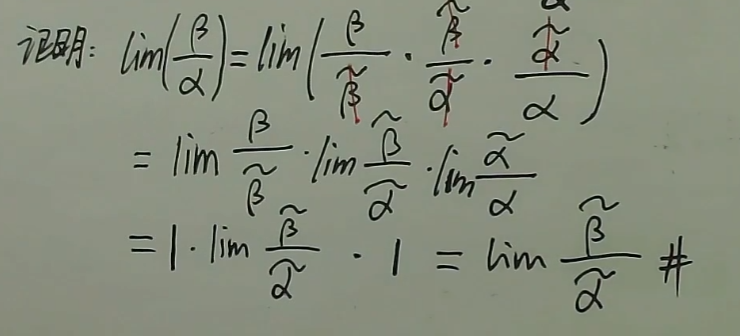 证明: lim(β/α) = lim(β/β̃ · β̃/α̃ · α̃/α)
= lim β/β̃ · lim β̃/α̃ · lim α̃/α
= 1 · lim β̃/α̃ · 1 = lim β̃/α̃ #